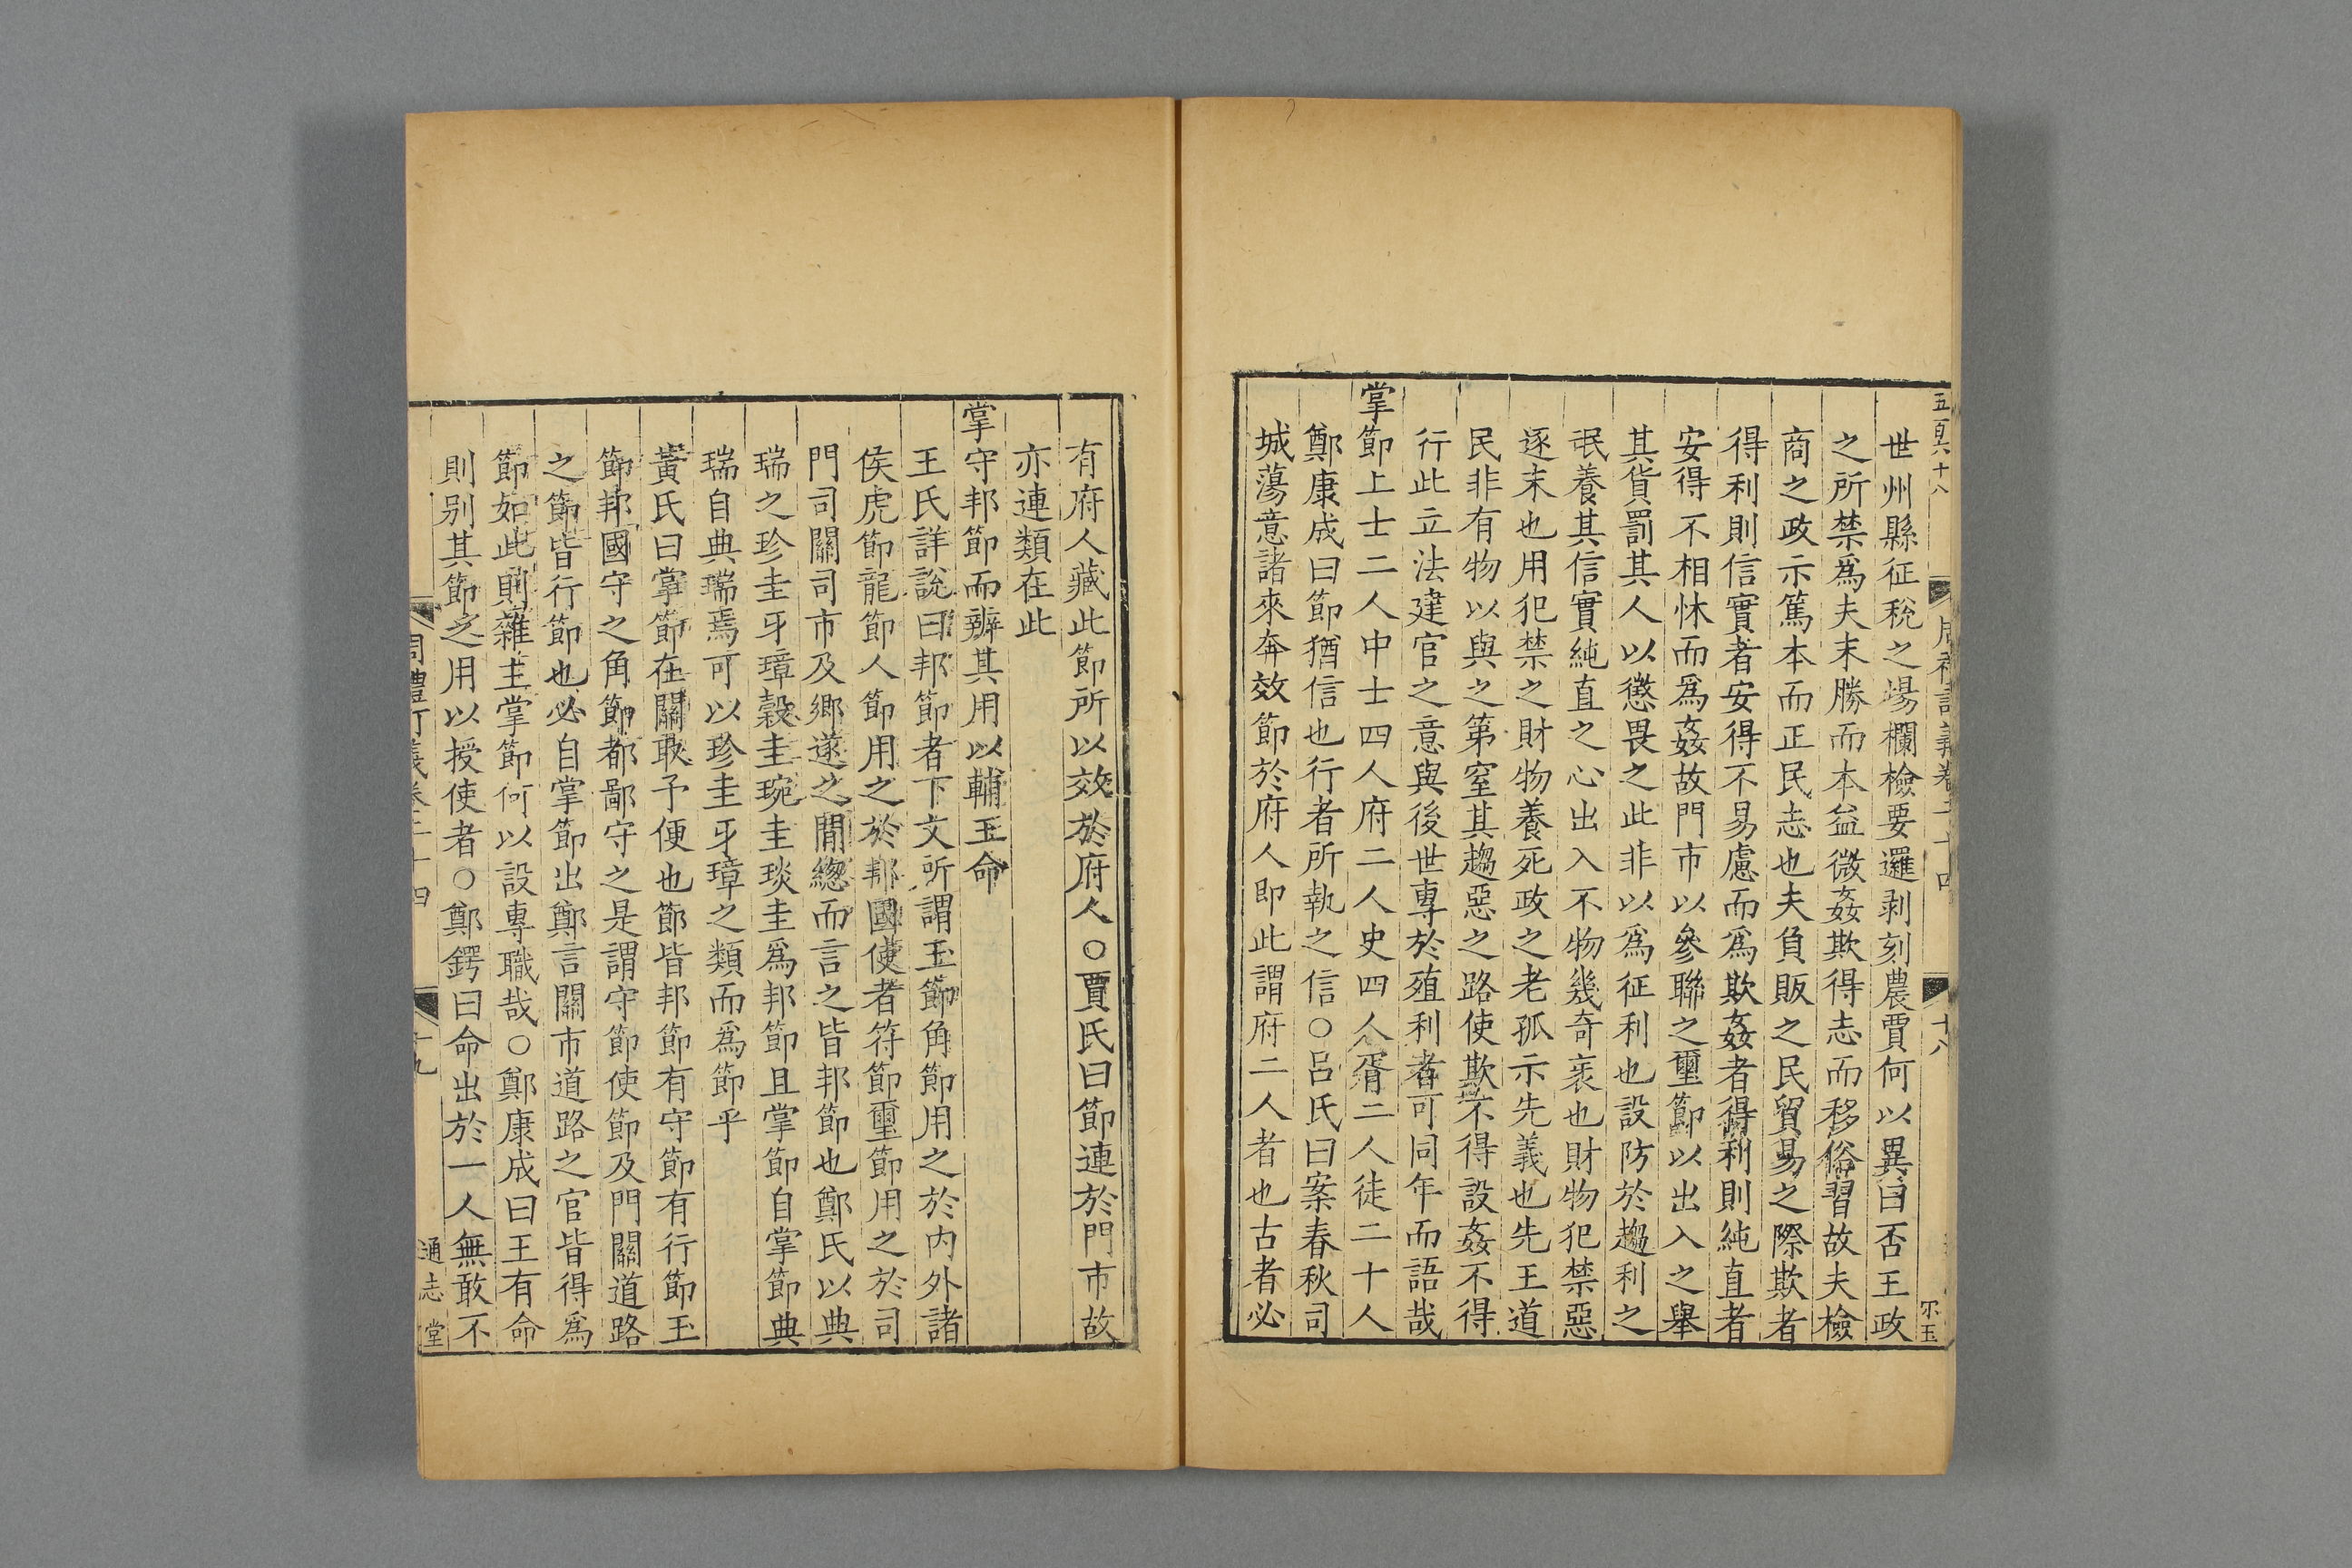 世州縣征稅之場欄檢要邏剥刻農賈何以異曰否王政
之所禁爲夫末勝而本益微姦欺得志而移俗習故夫檢
商之政示篤本而正民志也夫負販之民貿易之際欺者
得利則信實者安得不易慮而爲欺姦者得利則純直者
安得不相怵而爲姦故門市以參聯之璽節以出入之舉
其貨罰其人以懲畏之此非以爲征利也設防於趨利之
氓養其信實純直之心出入不物幾奇衺也財物犯禁惡
逐末也用犯禁之財物養死政之老孤示先義也先王道
民非有物以與之第窒其趨惡之路使欺不得設姦不得
行此立法建官之意與後世專於殖利者可同年而語哉
掌節上士二人中士四人府二人史四人胥二人徒二十人
鄭康成曰節猶信也行者所執之信○呂氏曰案春秋司
城蕩意諸來奔效節於府人即此謂府二人者也古者必
有府人藏此節所以效於府人○賈氏曰節連於門市故
亦連類在此
掌守邦節而辨其用以輔王命
王氏詳說曰邦節者下文所謂玉節角節用之於內外諸
侯虎節龍節人節用之於邦國使者符節璽節用之於司
門司關司市及鄉遂之間緫而言之皆邦節也鄭氏以典
瑞之珍圭牙璋穀圭琬圭琰圭爲邦節且掌節自掌節典
瑞自典瑞焉可以珍圭牙璋之類而爲節乎
黃氏曰掌節在關取予便也節皆邦節有守節有行節玉
節邦國守之角節都鄙守之是謂守節使節及門關道路
之節皆行節也必自掌節出鄭言關市道路之官皆得爲
節如此則雜主掌節何以設專職哉○鄭康成曰王有命
則别其節之用以授使者○鄭鍔曰命出於一人無敢不
周禮訂義卷二十四
十九
通志堂